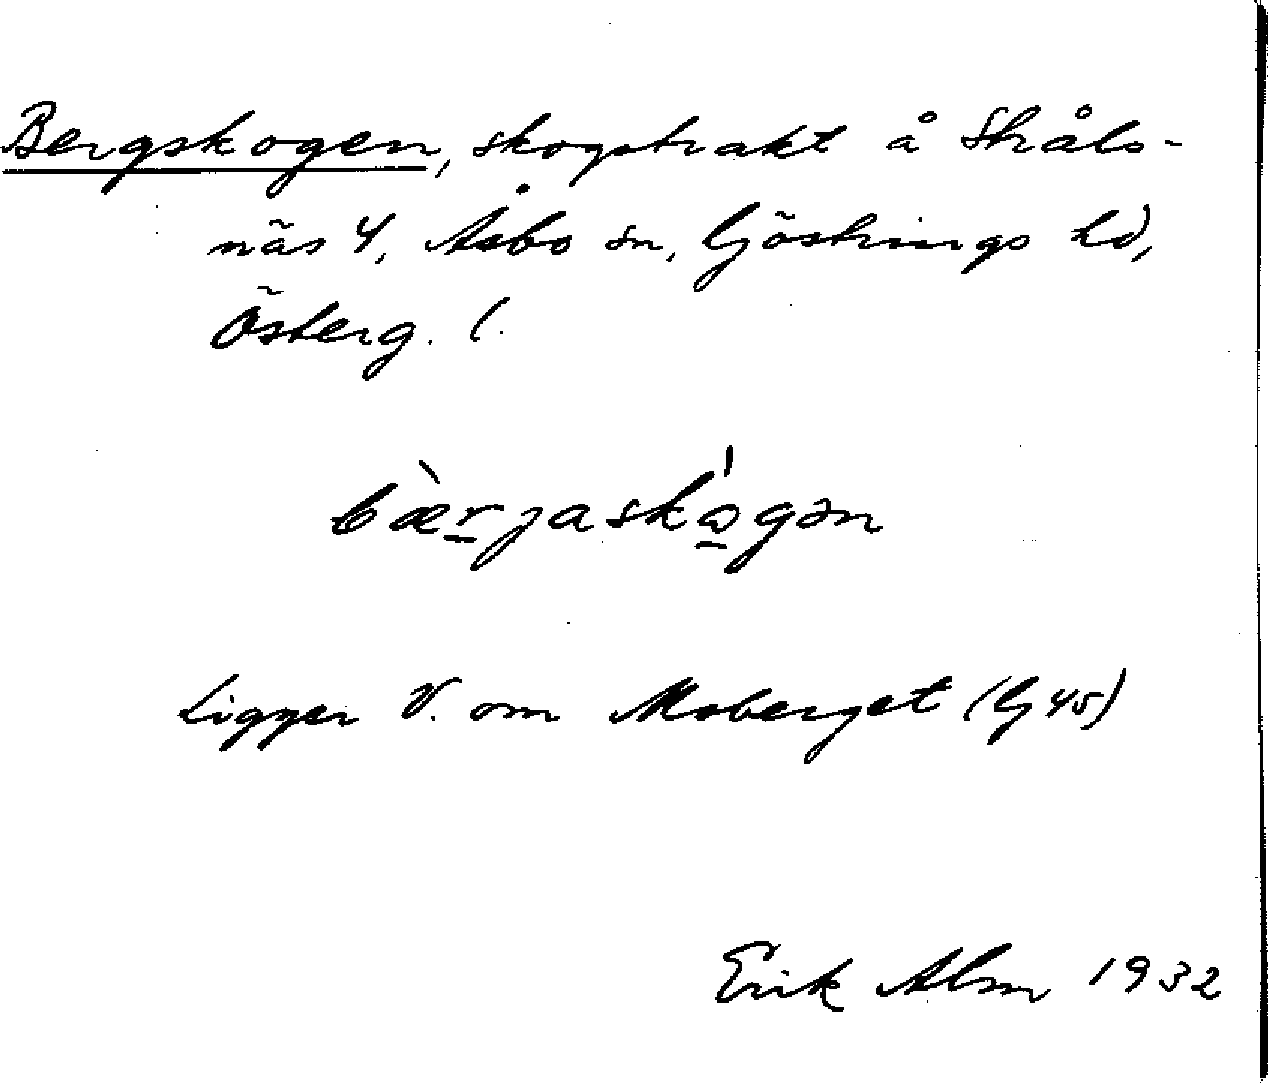 Bergskogen, skogstrakt å Stråls-
näs 4, Åsbo sn, Göstrings hd,
Österg. l.
bær̲jaskɷ̲gən
Ligger V. om Moberget (G 45)
Erik Alm 1932